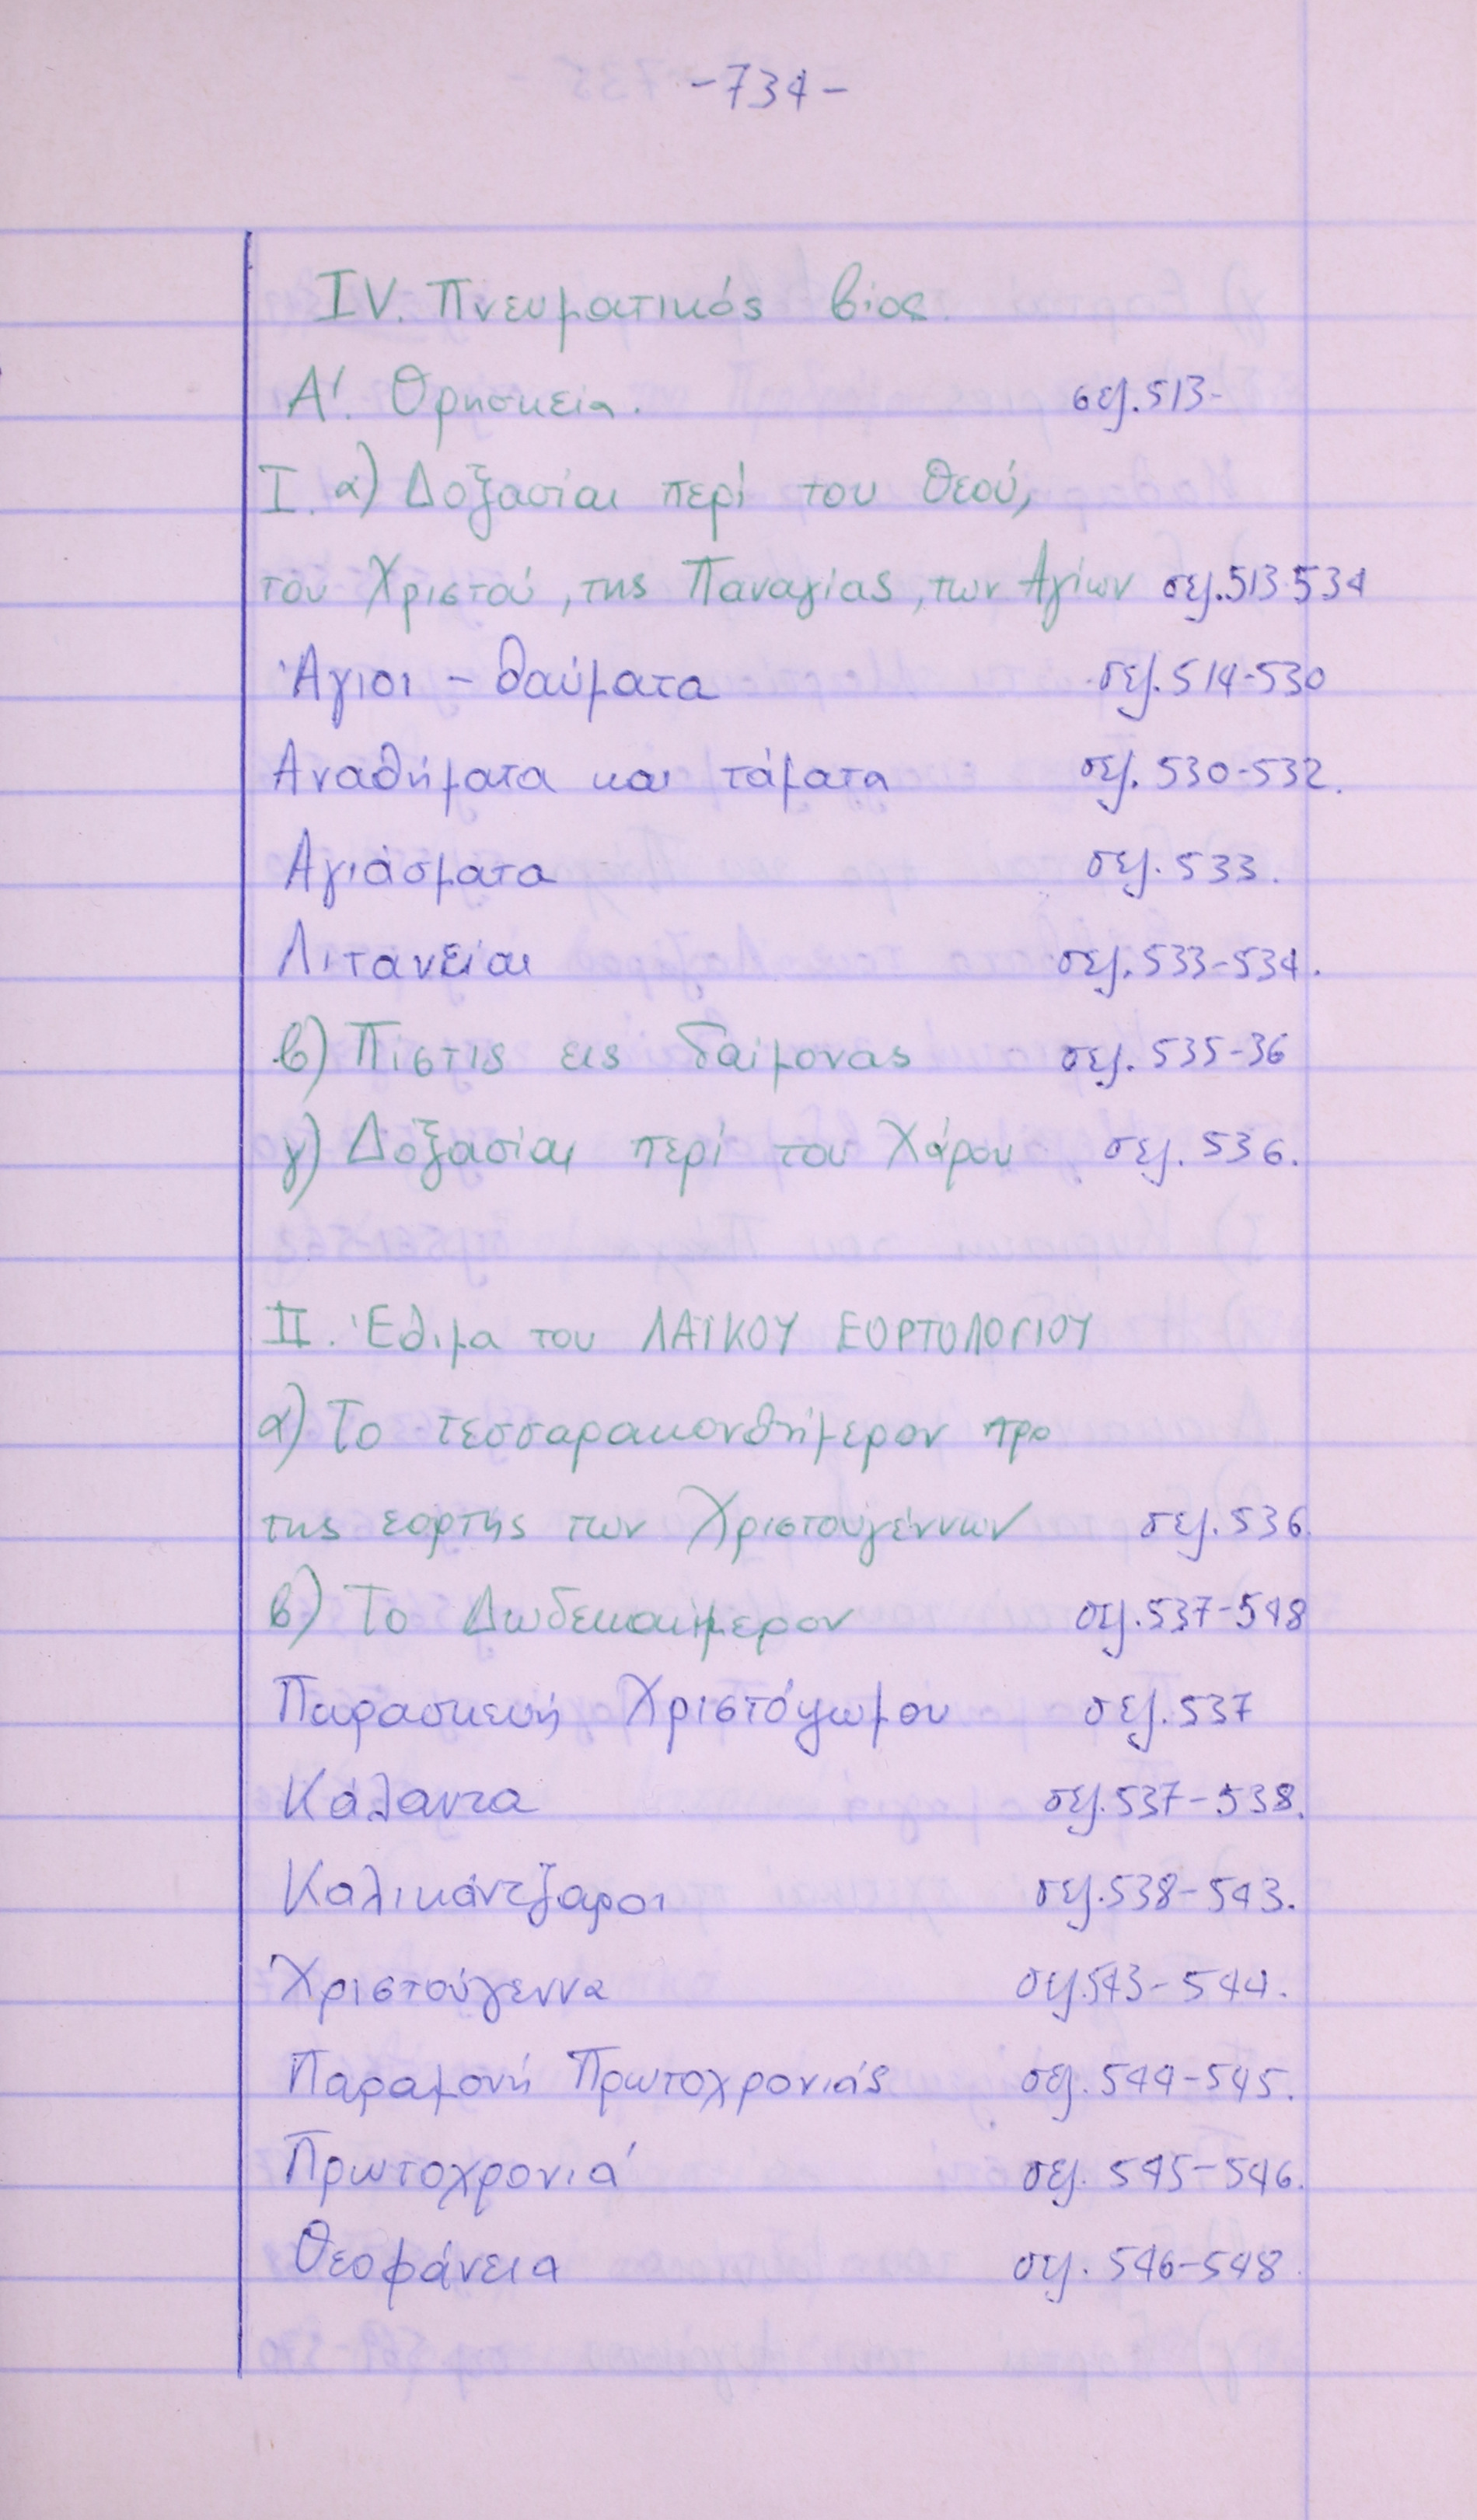 -734-
IV. Πνευματικός βίος.
Α'. Θρησκεία. σελ.513-
I. α) Δοξασίαι περί του Θεού,
του Χριστού, της Παναγίας, των Αγίων σελ.513-534
Άγιοι - θαύματα σελ. 514-530
Αναθήματα και τάματα σελ. 530-532.
Αγιάσματα σελ. 533.
Λιτανείαι σελ. 533-534.
β) Πίστις εις δαίμονας σελ. 535-36
γ) Δοξασίαι περί του Χάρου σελ. 536.
II. Έθιμα του ΛΑΪΚΟΥ ΕΟΡΤΟΛΟΓΙΟΥ
α) Το τεσσαρακονθήμερον προ
της εορτής των Χριστουγέννων σελ. 536.
β) Το Δωδεκαήμερον σελ. 537-548
Παρασκευή Χριστόψωμου σελ. 537
Κάλαντα σελ. 537-538.
Καλικάντζαροι σελ. 538-543.
Χριστούγεννα σελ. 543-544.
Παραμονή Πρωτοχρονιάς σελ. 544-545.
Πρωτοχρονιά σελ. 545-546.
Θεοφάνεια σελ. 546-548.